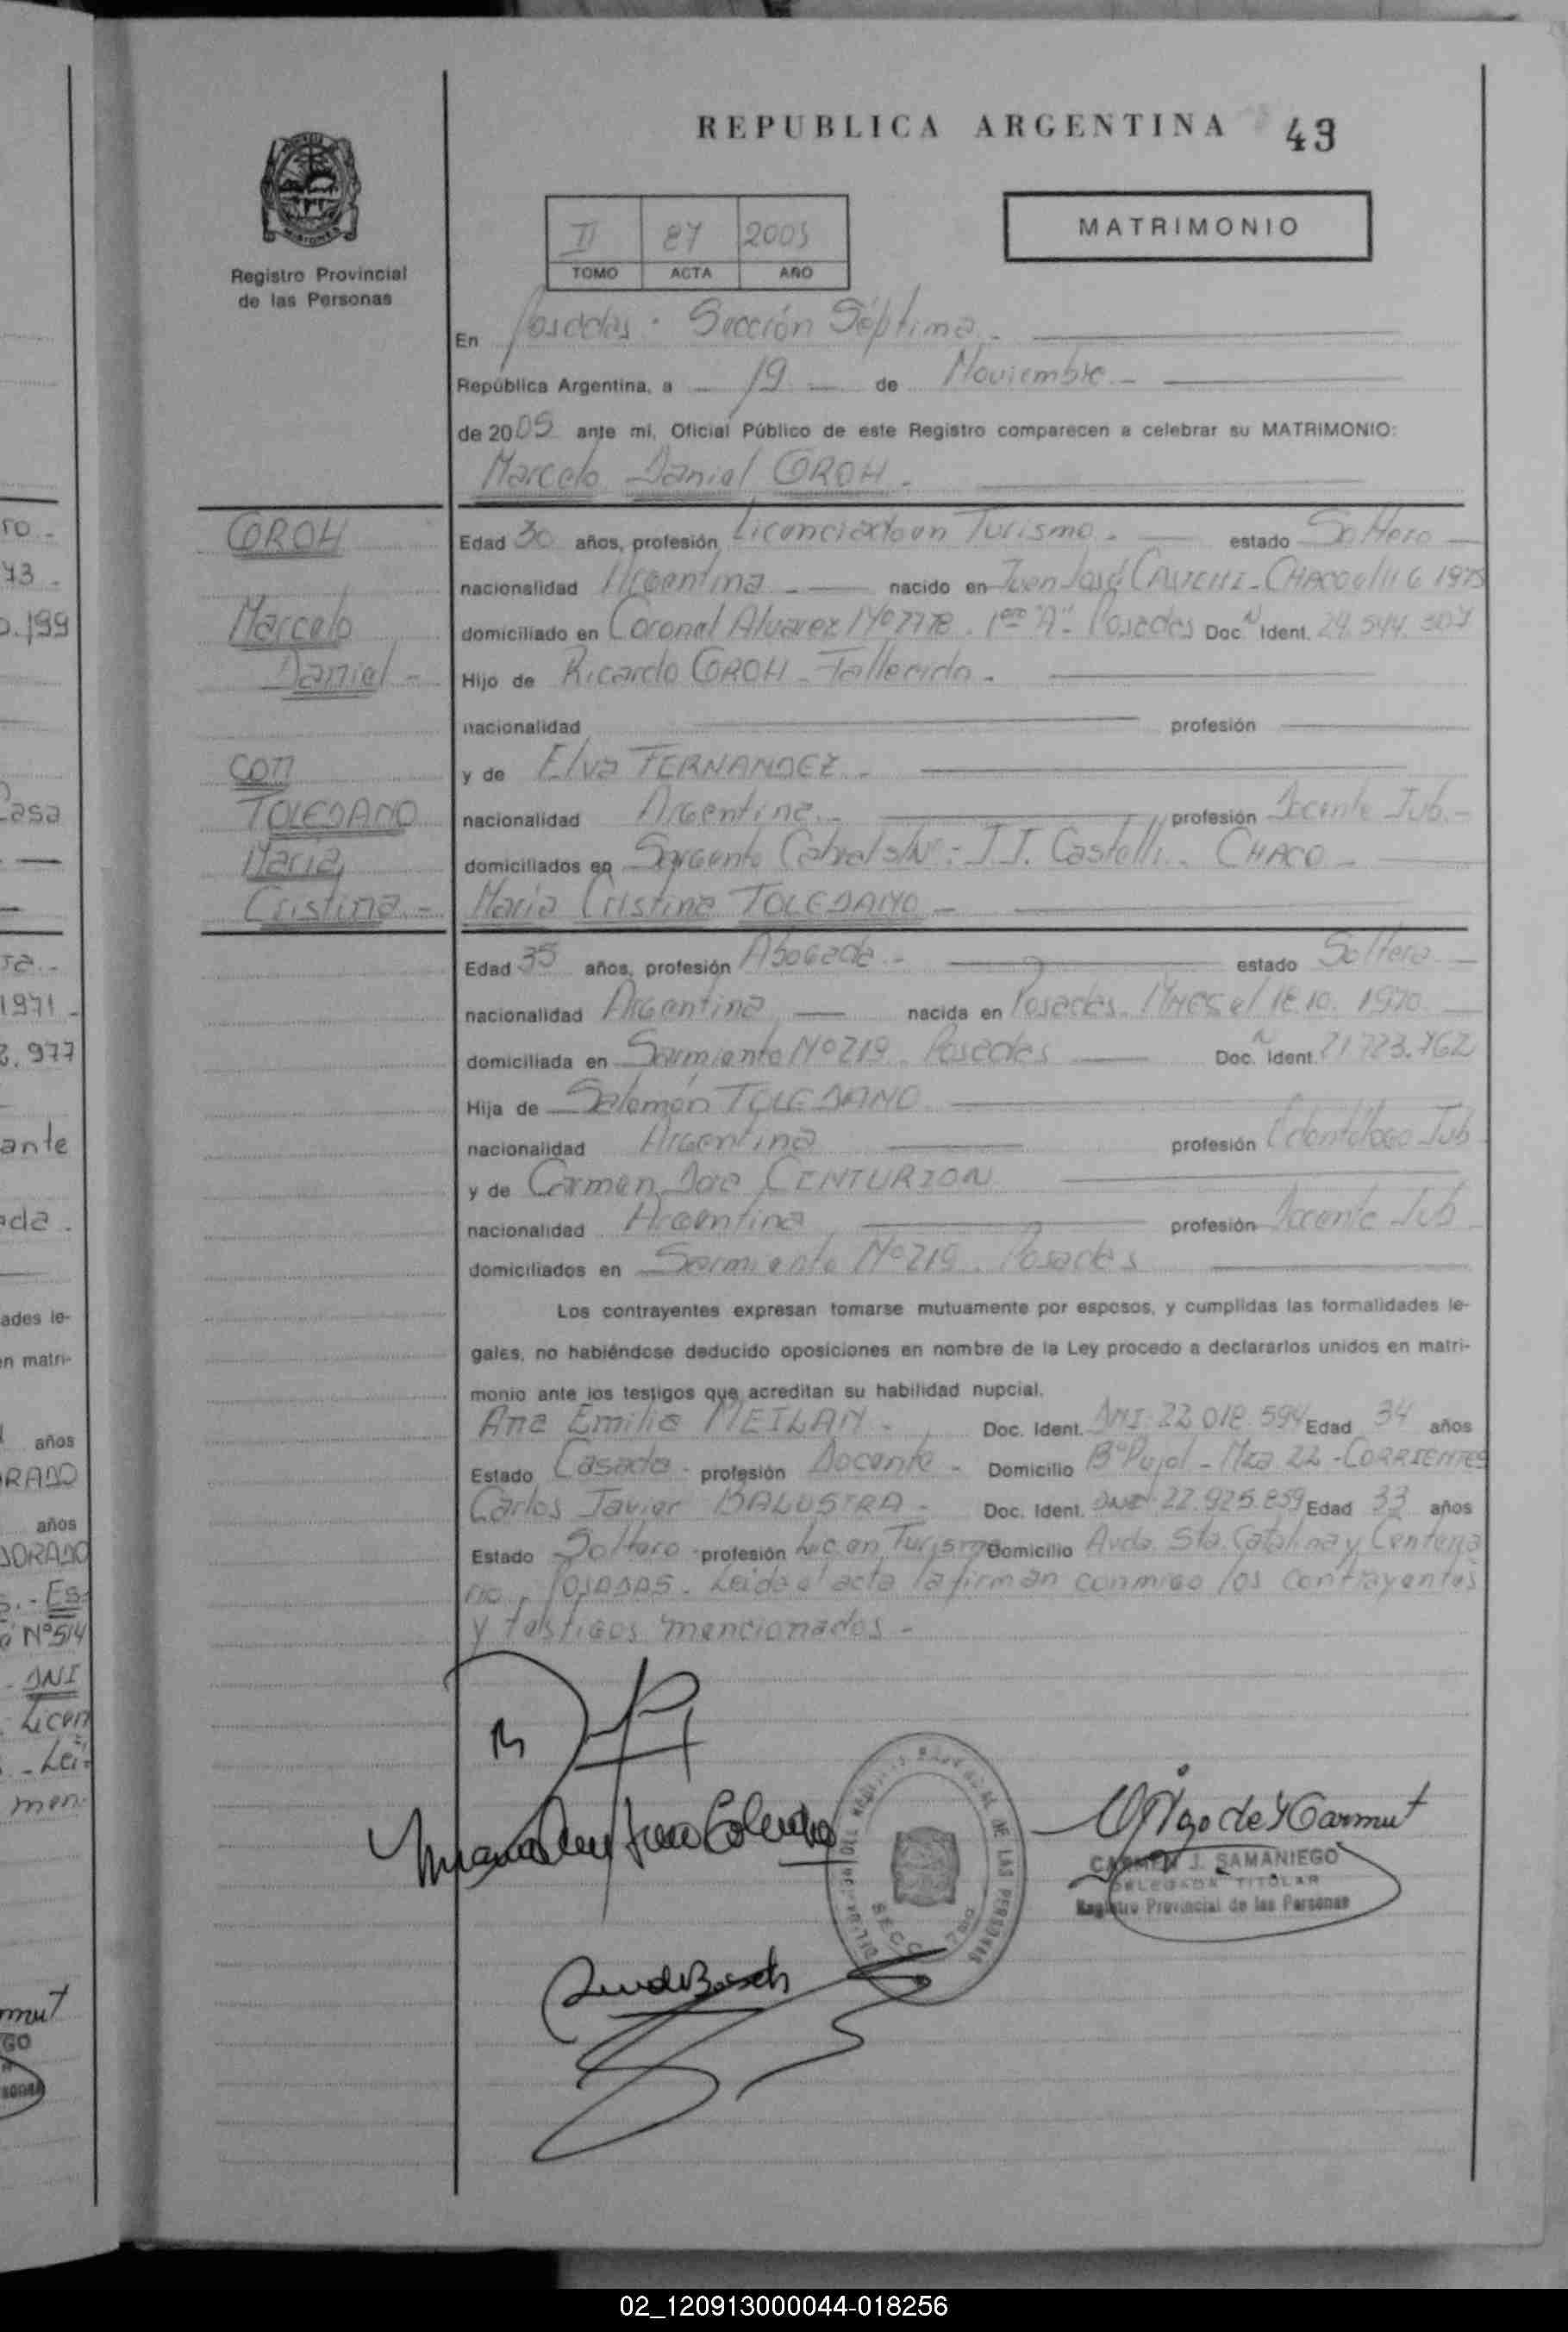 REPUBLICA ARGENTINA 43
MISIONES
Registro Provincial
de las Personas
II 87 2005
TOMO ACTA AÑO
MATRIMONIO
En Posadas - Sección Séptima -
República Argentina, a - 19 - de Noviembre -
de 2005 ante mi, Oficial Público de este Registro comparecen a celebrar su MATRIMONIO:
Marcelo Daniel GROH -
GROH
Marcelo
Daniel -
con
TOLEDANO
María
Cristina -
Edad 30 años, profesión Licenciado en Turismo - estado Soltero
nacionalidad Argentina - nacido en Juan José - CHACO el 11 6 1975
domiciliado en Coronel Alvarez Nº 1ero "A" - Posadas Doc. Ident. 24.544.307
Hijo de Ricardo GROH - Fallecido -
nacionalidad profesión
y de Elva FERNANDEZ -
nacionalidad Argentina - profesión Docente Jub. -
domiciliados en Sargento Cabral s/Nº - J.J. Castelli - CHACO -
María Cristina TOLEDANO -
Edad 35 años, profesión Abogada - estado Soltera
nacionalidad Argentina nacida en Posadas - Mnes el 18.10.1970
domiciliada en Sarmiento Nº 219 - Posadas Doc. Ident. 21.723.762
Hija de Salomón TOLEDANO
nacionalidad Argentina profesión Odontólogo Jub
y de Carmen CENTURION
nacionalidad Argentina profesión Docente Jub
domiciliados en Sarmiento Nº 219 - Posadas
Los contrayentes expresan tomarse mutuamente por esposos, y cumplidas las formalidades le-
gales, no habiéndose deducido oposiciones en nombre de la Ley procedo a declararlos unidos en matri-
monio ante los testigos que acreditan su habilidad nupcial.
Ana Emilia MEILAN - Doc. Ident. DNI 22.018.594 Edad 34 años
Estado Casada - profesión Docente - Domicilio Bº Pujol - Mza 22 - CORRIENTES
Carlos Javier BALUSTRA - Doc. Ident. DNI 22.925.859 Edad 33 años
Estado Soltero profesión Lic en Turismo Domicilio Avda. Sta. Catalina y Centena
rio - POSADAS - Leida el acta la firman conmigo los contrayentes
y testigos mencionados -
REGISTRO PROVINCIAL DE LAS PERSONAS
SECC
CARMEN J. SAMANIEGO
DELEGADA TITULAR
Registro Provincial de las Personas
02_120913000044-018256